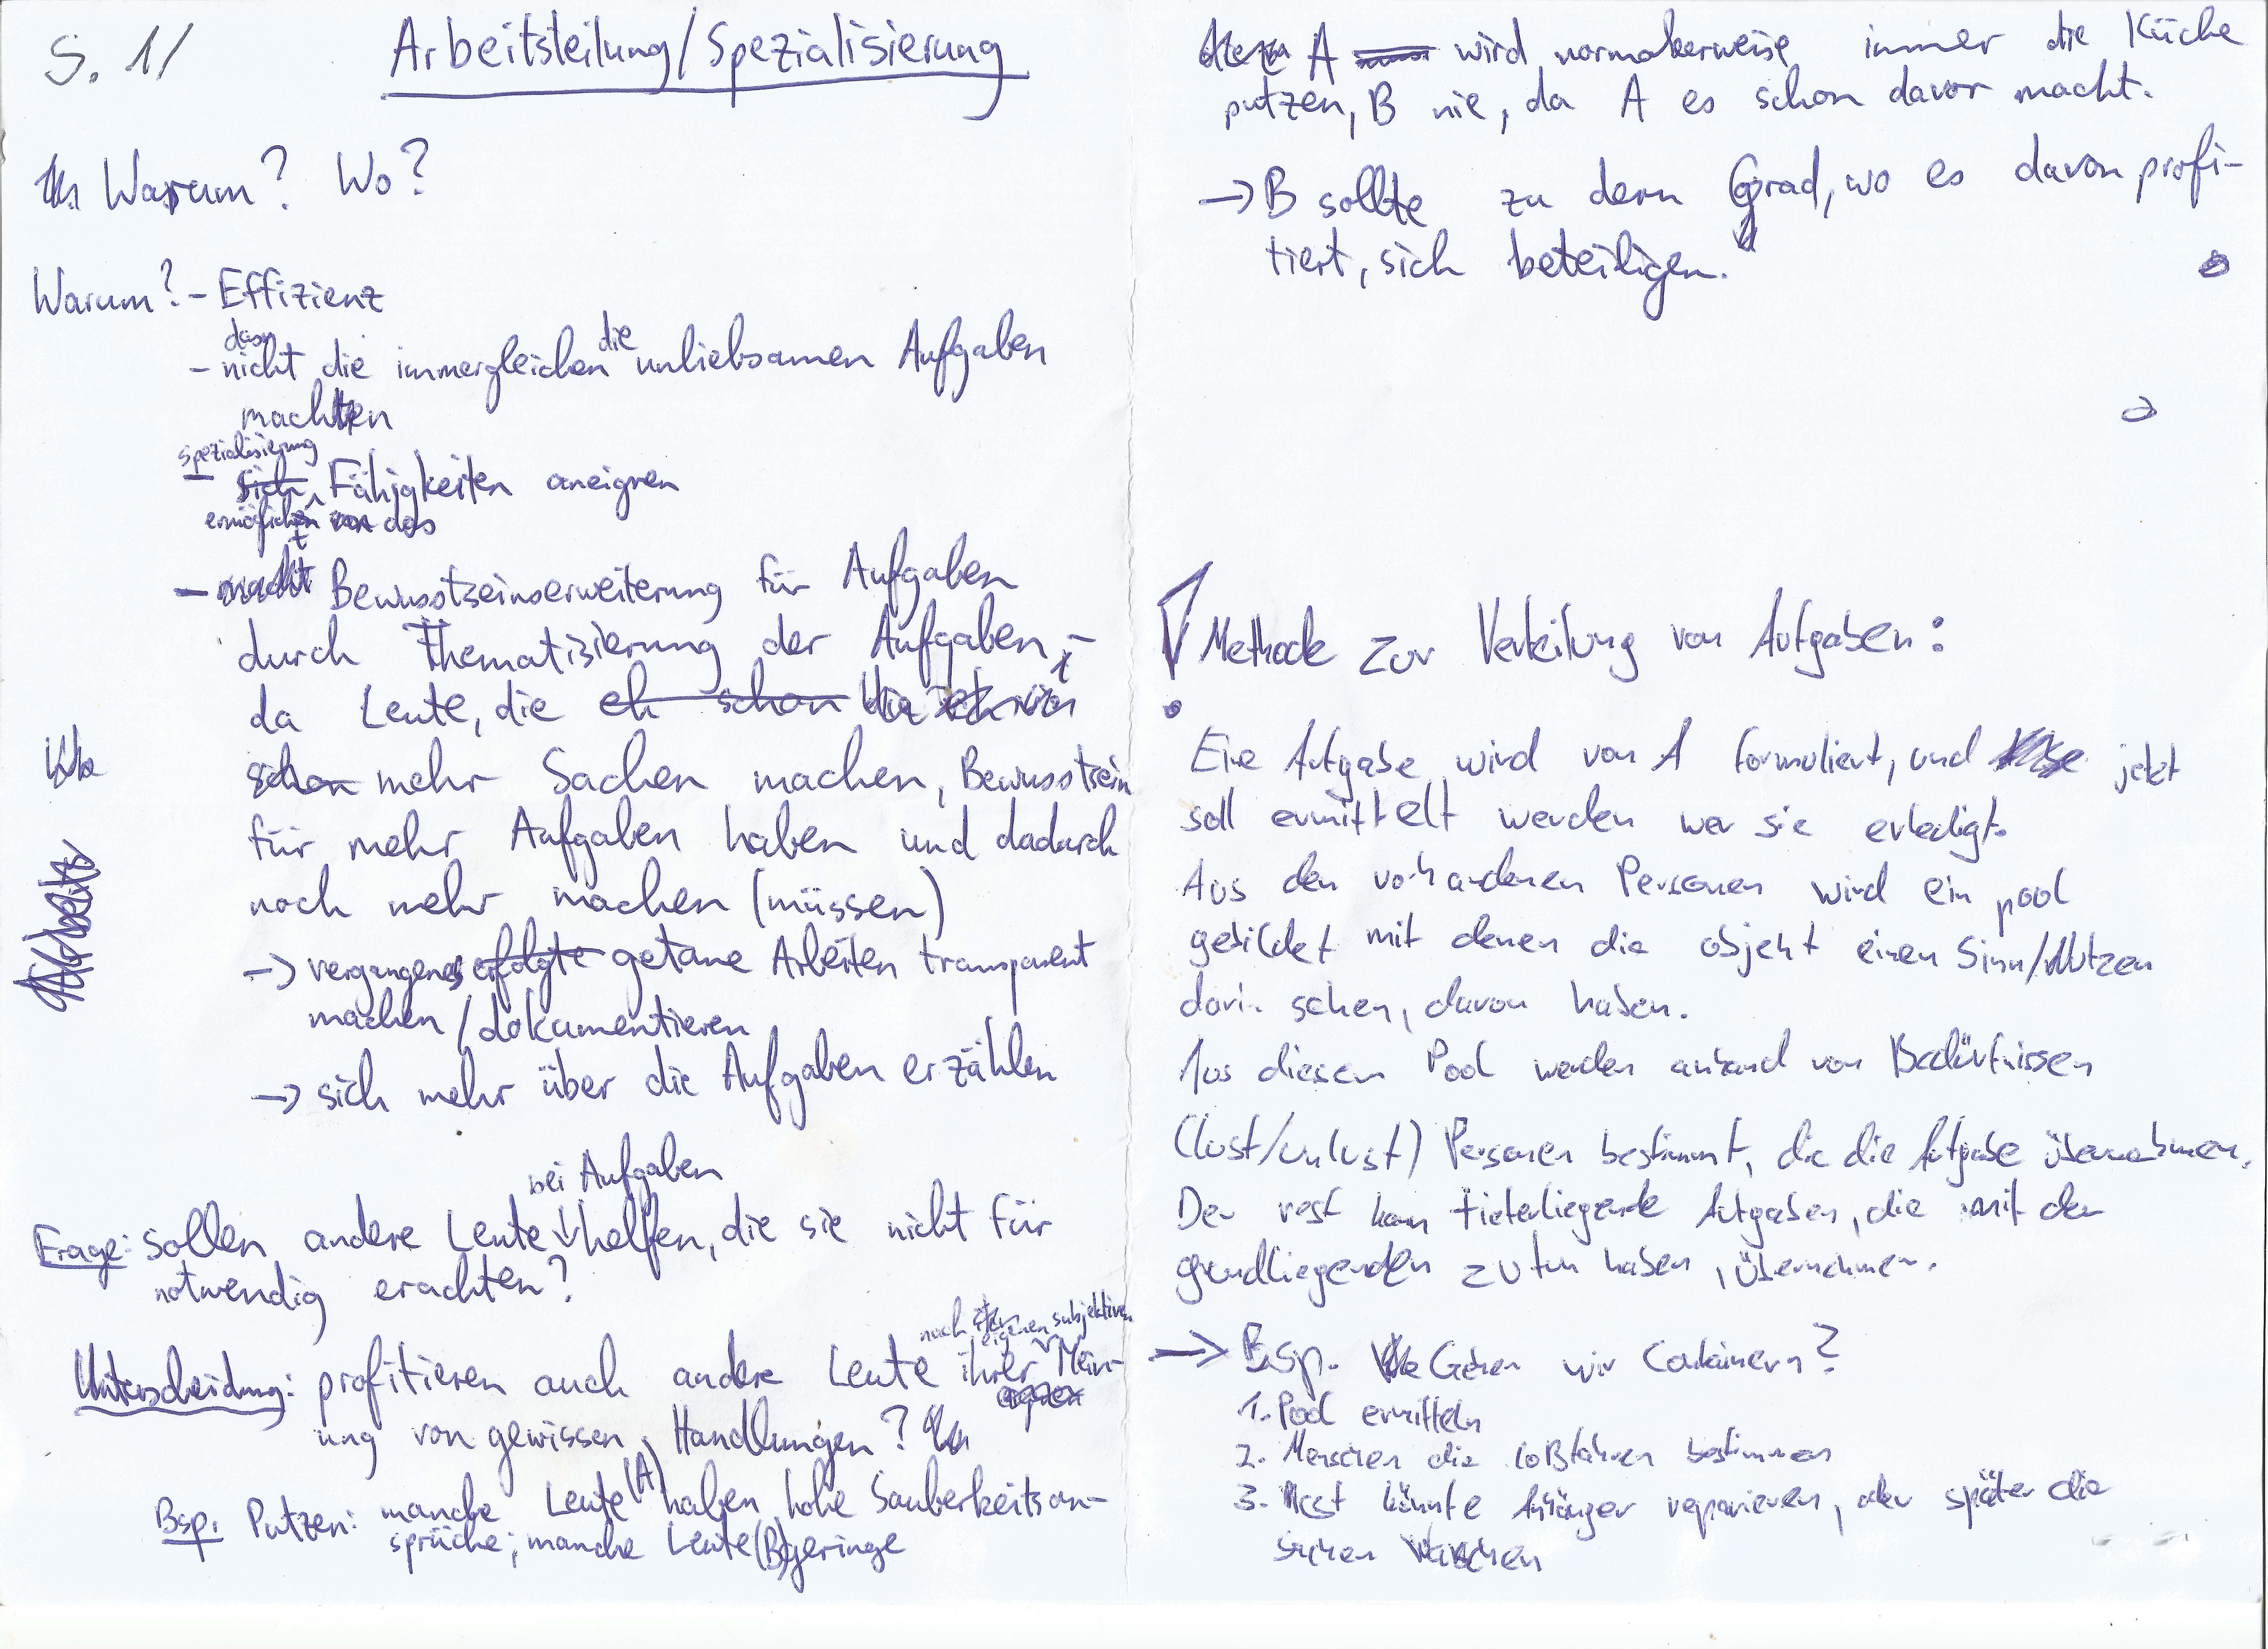 S. 1/
Arbeitsteilung/Spezialisierung
Warum? Wo?
Warum? - Effizienz
das
die
- nicht die immergleichen unliebsamen Aufgaben
machen
spezialisierung
- sich Fähigkeiten aneignen
ermöglicht das
- macht Bewusstseinserweiterung für Aufgaben
durch Thematisierung der Aufgaben,
da Leute, die eh schon
schon mehr Sachen machen, Bewusstsein
für mehr Aufgaben haben und dadurch
noch mehr machen (müssen)
-> vergangenes erfolgte getane Arbeiten transparent
machen/dokumentieren
-> sich mehr über die Aufgaben erzählen
bei Aufgaben
Frage: sollen andere Leute helfen, die sie nicht für
notwendig erachten?
nach eigenen subjektiven
Unterscheidung: profitieren auch andere Leute ihrer Mein-
ung von gewissen Handlungen?
Bsp. Putzen: manche Leute (A) haben hohe Sauberkeitsan-
sprüche; manche Leute (B) geringe
A wird normalerweise immer die Küche
putzen, B nie, da A es schon davor macht.
-> B sollte zu dem Grad, wo es davon profi-
tiert, sich beteiligen.
! Methode zur Verteilung von Aufgaben:
Eine Aufgabe wird von A formuliert, und jetzt
soll ermittelt werden wer sie erledigt.
Aus den vorhandenen Personen wird ein pool
gebildet mit denen die objekt einen Sinn/Nutzen
darin sehen, davon haben.
Aus diesem Pool werden anhand von Bedürfnissen
(lust/unlust) Personen bestimmt, die die Aufgabe übernehmen.
Der rest kann tieferliegende Aufgaben, die mit der
grundliegenden zu tun haben, übernehmen.
-> Bsp. Gehen wir Containern?
1. Pool ermitteln
2. Menschen die loßfahren bestimmen
3. Rest könnte Anhänger reparieren, oder später die
sachen waschen